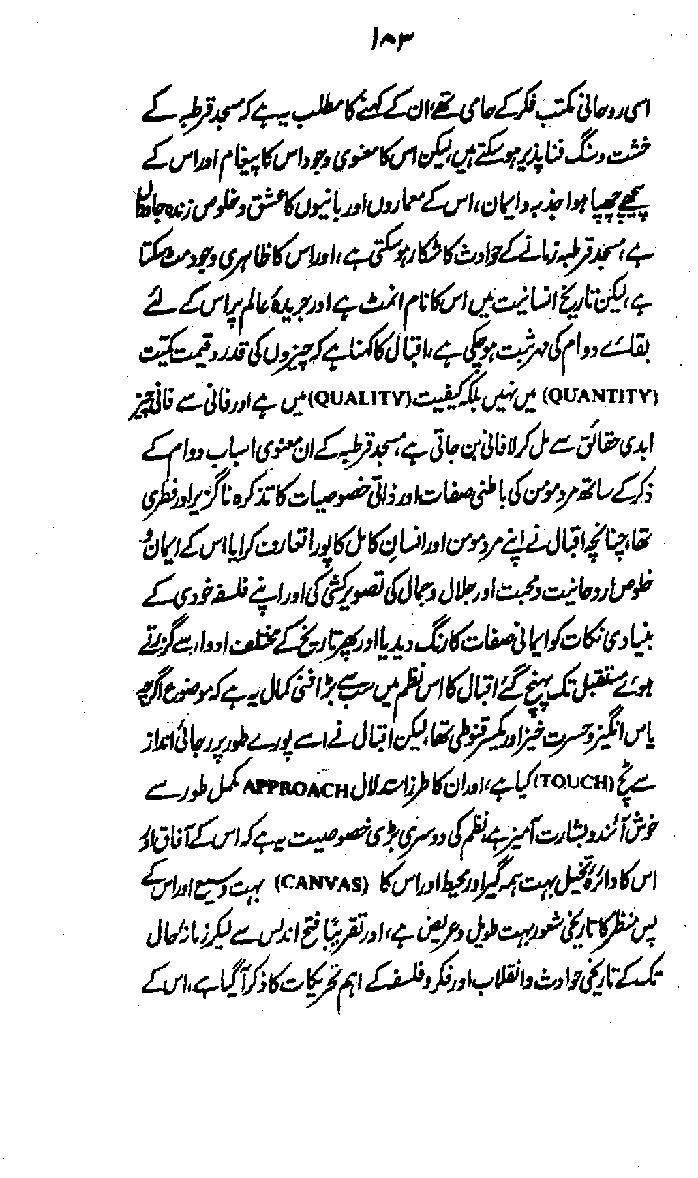 ۱۸۳
اسی روحانی مکتب فکر کے حامی تھے، ان کے کہنے کا مطلب یہ ہے کہ مسجد قرطبہ کے
خشت و سنگ فنا پذیر ہو سکتے ہیں، لیکن اس کا معنوی وجود اس کا پیغام اور اس کے
پیچھے چھپا ہوا جذبہ و ایمان، اس کے معماروں اور بانیوں کا عشق و خلوص زندہ جاوداں
ہے، مسجد قرطبہ زمانے کے حوادث کا شکار ہو سکتی ہے، اور اس کا ظاہری وجود مٹ سکتا
ہے، لیکن تاریخ انسانیت میں اس کا نام انمٹ ہے اور جریدۂ عالم پر اس کے لئے
بقائے دوام کی مہر ثبت ہو چکی ہے، اقبال کا کہنا ہے کہ چیزوں کی قدر و قیمت کمیت
(QUANTITY) میں نہیں بلکہ کیفیت (QUALITY) میں ہے اور فانی سے فانی چیز
ابدی حقائق سے مل کر لافانی بن جاتی ہے، مسجد قرطبہ کے ان معنوی اسباب دوام کے
ذکر کے ساتھ مرد مومن کی باطنی صفات اور ذاتی خصوصیات کا تذکرہ ناگزیر اور فطری
تھا، چنانچہ اقبال نے اپنے مرد مومن اور انسانِ کامل کا پورا تعارف کرایا اس کے ایمان و
خلوص، روحانیت و محبت اور جلال و جمال کی تصویر کشی کی اور اپنے فلسفہ خودی کے
بنیادی نکات کو ایمانی صفات کا رنگ دیدیا اور پھر تاریخ کے مختلف ادوار سے گزرتے
ہوئے مستقبل تک پہنچ گئے اقبال کا اس نظم میں سب سے بڑا فنی کمال یہ ہے کہ موضوع اگرچہ
یاس انگیز و حسرت خیز اور یکسر قنوطی تھا، لیکن اقبال نے اسے پورے طور پر رجائی انداز
سے ٹچ (TOUCH) کیا ہے، اور ان کا طرز استدلال APPROACH مکمل طور سے
خوش آئند و بشارت آمیز ہے، نظم کی دوسری بڑی خصوصیت یہ ہے کہ اس کے آفاق اور
اس کا دائرہ تخیل بہت ہمہ گیر اور محیط اور اس کا (CANVAS) بہت وسیع اور اس کے
پس منظر کا تاریخی شعور بہت طویل و عریض ہے، اور تقریباً فتح اندلس سے لیکر زمانۂ حال
تک کے تاریخی حوادث و انقلاب اور فکر و فلسفہ کے اہم تحریکات کا ذکر آگیا ہے، اس کے